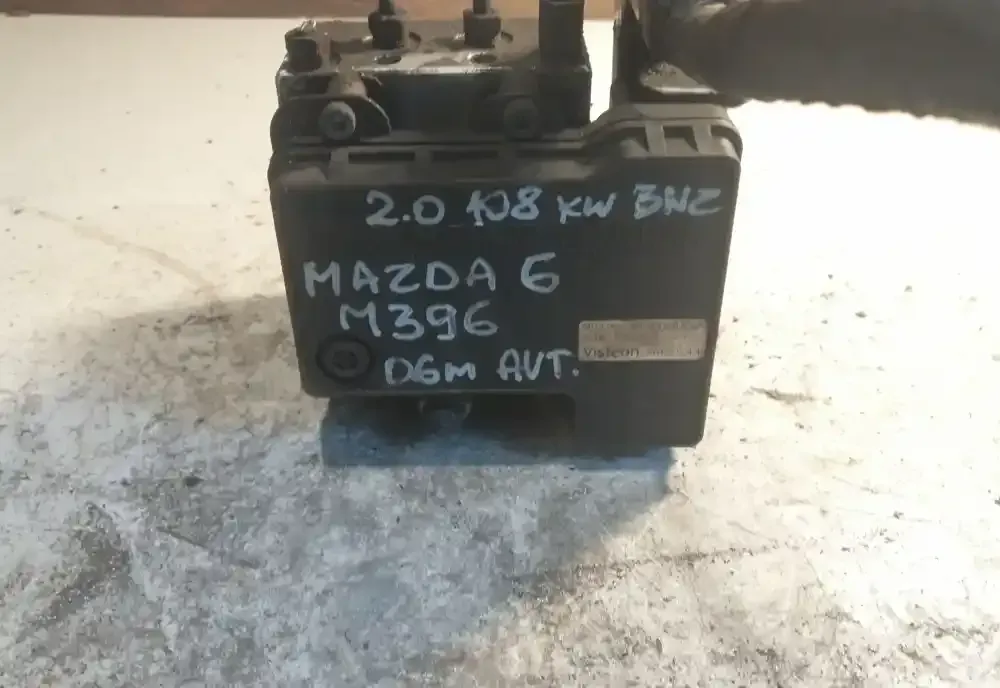 2.0 108 KW BNZ
MAZDA 6
M396
06m AVT.
Visteon